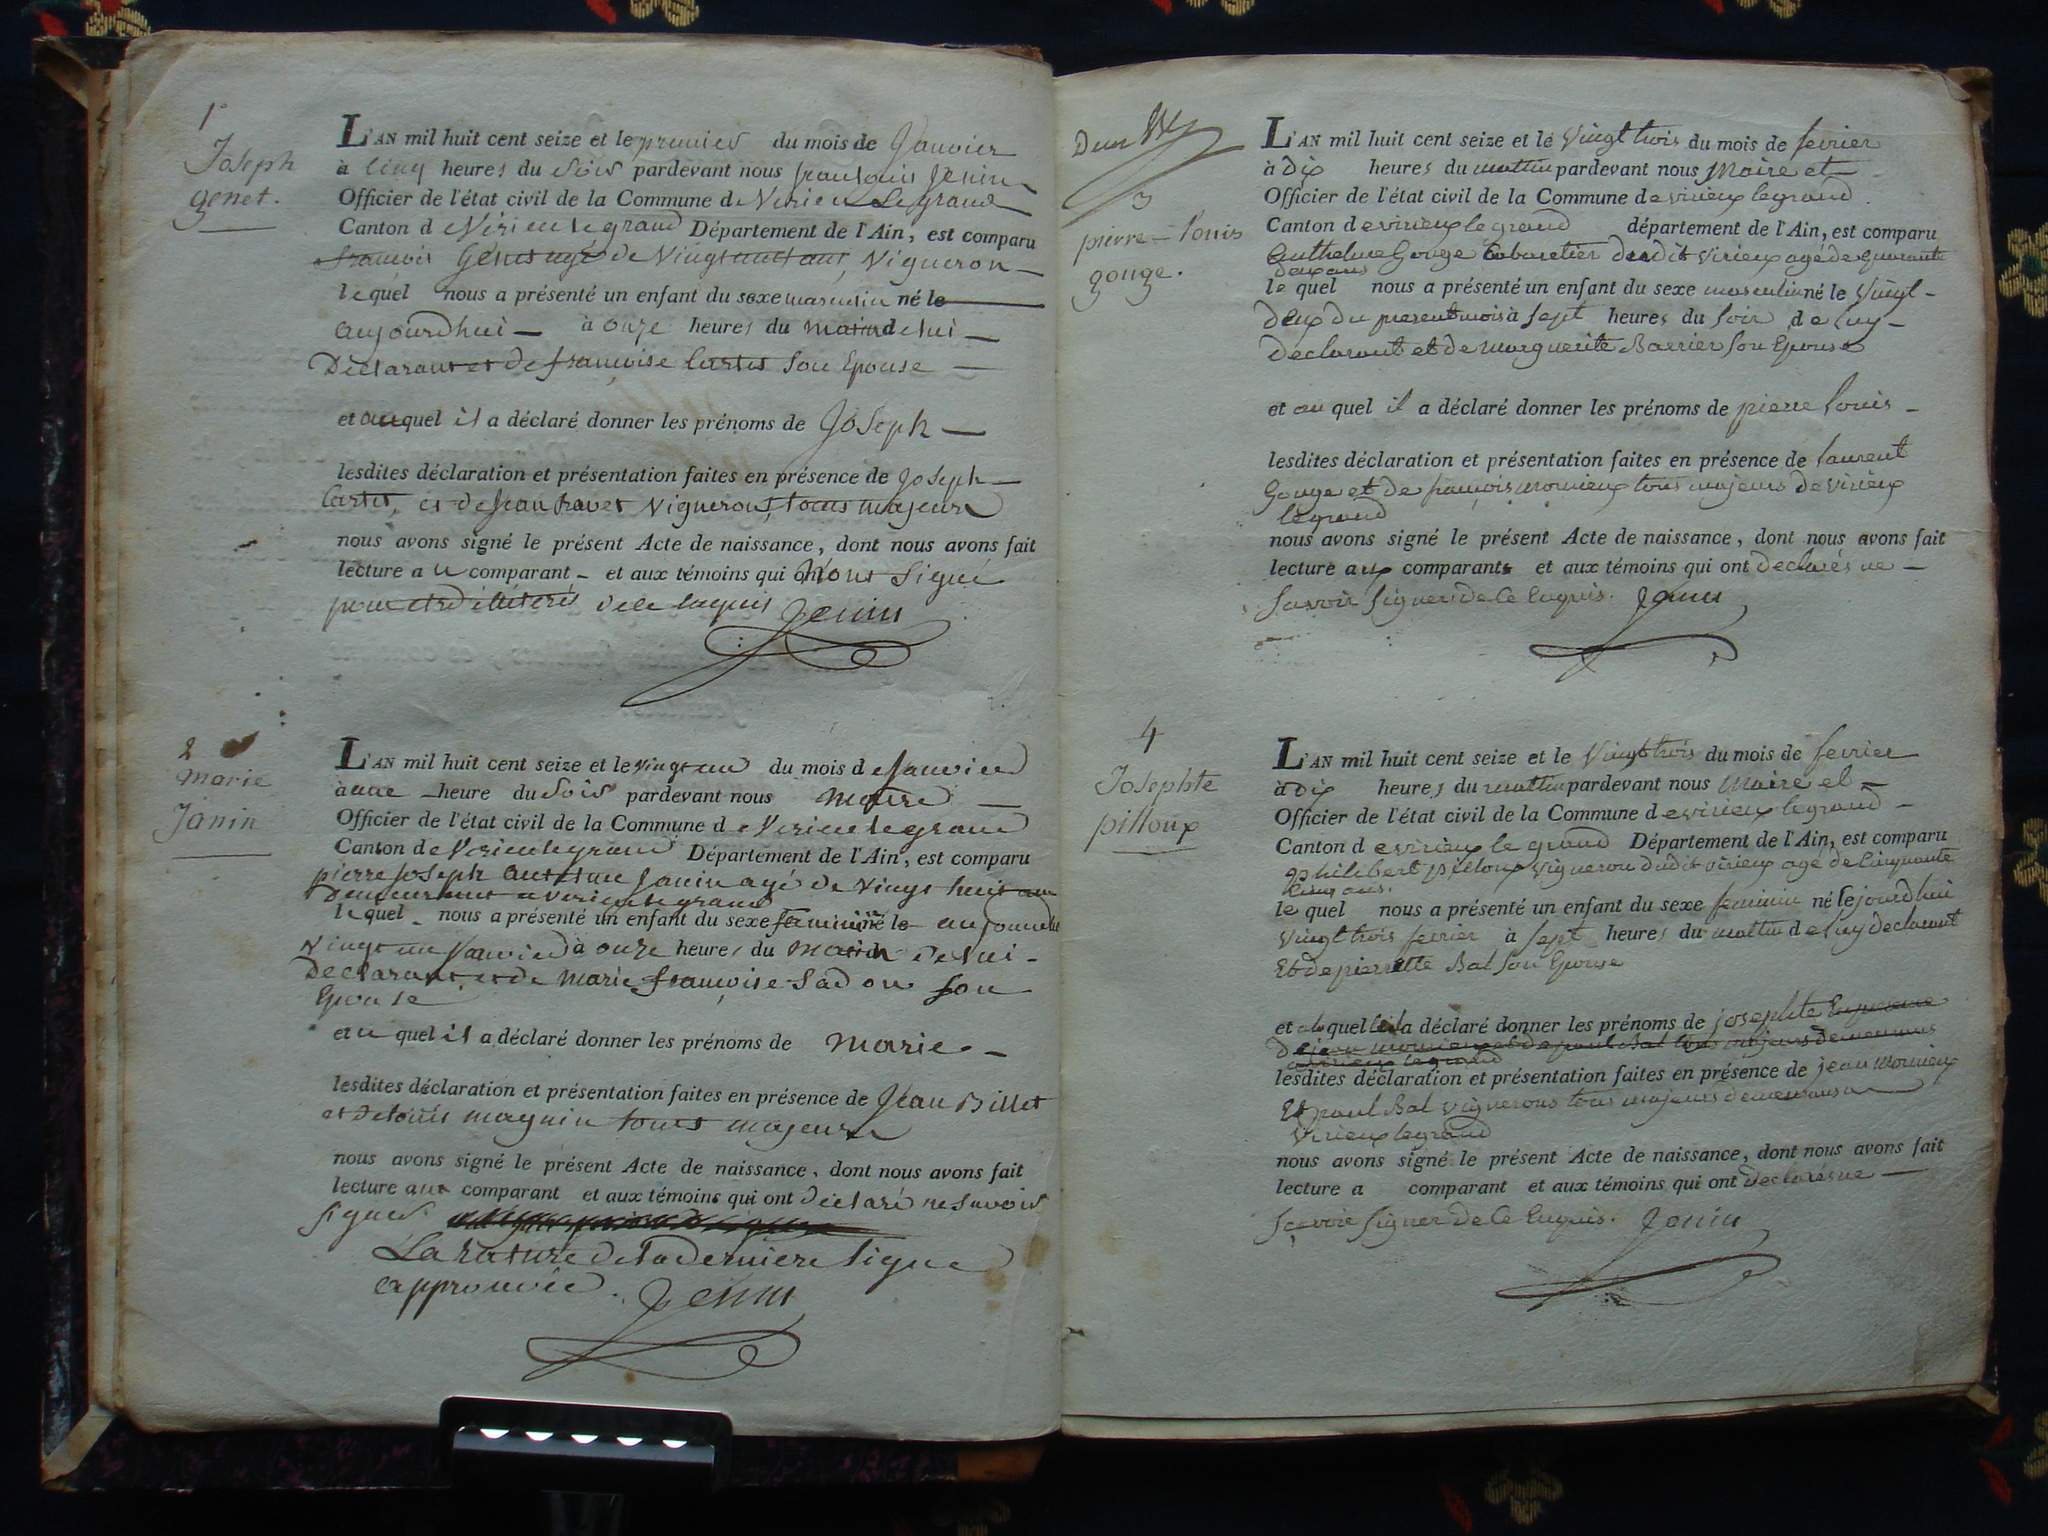 1°
Joseph
genet.
L'AN mil huit cent seize et le premier du mois de Janvier
à cinq heures du soir pardevant nous francois Jenin
Officier de l'état civil de la Commune de Virieu Le grand
Canton de Virieu le grand Département de l'Ain, est comparu
francois Genet agé de Vingt huit ans, Vigneron
lequel nous a présenté un enfant du sexe masculin né le
aujourdhui à onze heures du matin de lui
Déclarant et de françoise Cartet son Epouse
et auquel il a déclaré donner les prénoms de Joseph
lesdites déclaration et présentation faites en présence de Joseph
Cartet, et de Jean Vignerons, tous majeurs
nous avons signé le présent Acte de naissance, dont nous avons fait
lecture au comparant et aux témoins qui ont signé
pour de ce enquis Jenin
2
marie
Janin
L'AN mil huit cent seize et le vingt un du mois de Janvier
à une heure du Soir pardevant nous Maire
Officier de l'état civil de la Commune de Virieu le grand
Canton de Virieu le grand Département de l'Ain, est comparu
pierre Joseph Antelme Janin agé de vingt huit ans
Demeurant a Virieu le grand
lequel nous a présenté un enfant du sexe feminin né le aujourdhui
Vingt un Janvier à onze heures du Matin de lui
Déclarant et de Marie françoise Sadou son
Epouse
et au quel il a déclaré donner les prénoms de Marie
lesdites déclaration et présentation faites en présence de Jean Billet
et de Louis magnin tous majeurs
nous avons signé le présent Acte de naissance, dont nous avons fait
lecture aux comparant et aux témoins qui ont déclaré ne savoir
signer
La rature de la derniere ligne
approuvée. Jenin
Deux
3
pierre-louis
gouge.
L'AN mil huit cent seize et le vingt trois du mois de fevrier
à dix heures du mattin pardevant nous Maire et
Officier de l'état civil de la Commune de virieux le grand.
Canton de virieux le grand département de l'Ain, est comparu
Anthelme Gouge Cabaretier dudit virieux agé de quarante
deux ans
lequel nous a présenté un enfant du sexe masculin né le Vingt
deux du present mois à sept heures du soir de luy
declarant et de marguerite Barrier son Epouse
et au quel il a déclaré donner les prénoms de pierre louis
lesdites déclaration et présentation faites en présence de laurent
Gouge et de françois mounieux tous majeurs de virieux
le grand
nous avons signé le présent Acte de naissance, dont nous avons fait
lecture aux comparants et aux témoins qui ont declarés ne
savoir signer de ce Enquis. Jenin
4
Josephte
pilloux
L'AN mil huit cent seize et le vingt trois du mois de fevrier
à dix heures du mattin pardevant nous Maire et
Officier de l'état civil de la Commune de virieux le grand
Canton de virieux le grand Département de l'Ain, est comparu
philibert pilloux vigneron dudit virieux agé de Cinquante
Cinq ans.
lequel nous a présenté un enfant du sexe feminin né le jourdhui
vingt trois fevrier à sept heures du mattin de luy declarant
Et de pierrette Bal son Epouse
et a quel il a déclaré donner les prénoms de josephte En presence
de jean mounieux et de paul Bal tous majeurs demeurans
a virieux le grand
lesdites déclaration et présentation faites en présence de jean mounieux
Et paul Bal vignerons tous majeurs demeurans a
Virieux le grand
nous avons signé le présent Acte de naissance, dont nous avons fait
lecture a comparant et aux témoins qui ont declarés ne
sçavoir signer de ce Enquis. Jenin